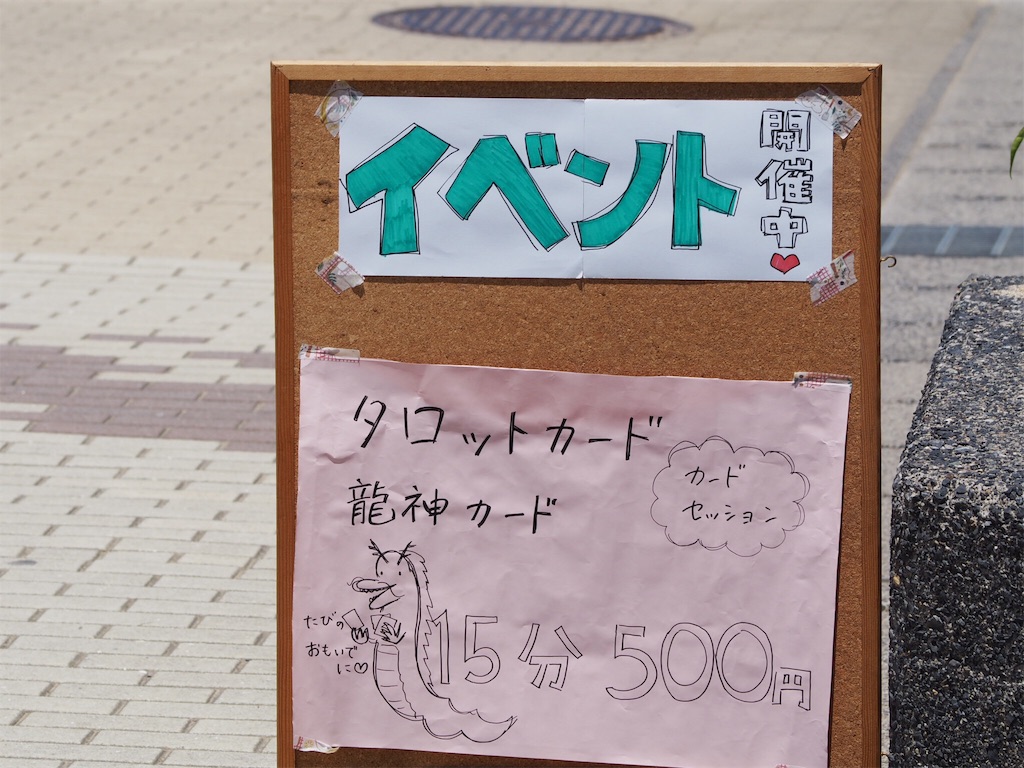 イベント
開催中
タロットカード
龍神カード
カード
セッション
たびの
おもいで
に
15分 500円